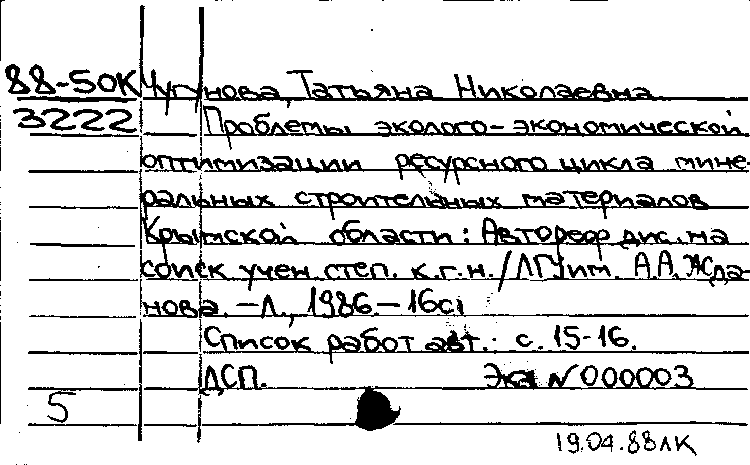 88-50К Чугунова, Татьяна Николаевна
3222 Проблемы эколого-экономической
оптимизации ресурсного цикла мине-
ральных строительных материалов
Крымской области: Автореф. дис. на
соиск учен. степ. к.г.н. / ЛГУ им. А.А. Жда-
нова. – Л., 1986. – 16с.
Список работ авт.: с. 15-16.
ДСП. Экз N 000003
5
19.04.88 ЛК